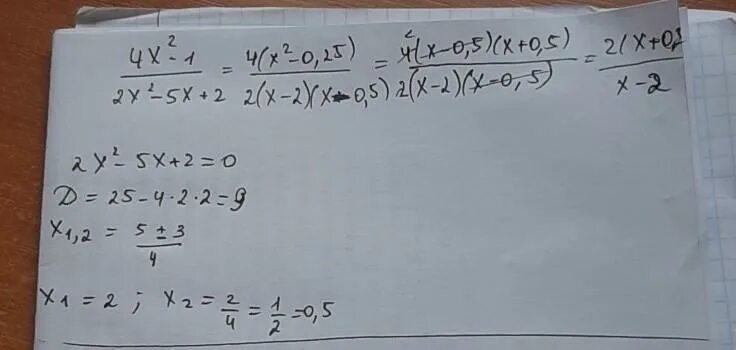 (4x² - 1)/(2x² - 5x + 2) = 4(x² - 0,25)/2(x - 2)(x - 0,5) = 4(x - 0,5)(x + 0,5)/2(x - 2)(x - 0,5) = 2(x + 0,/x - 2
2x² - 5x + 2 = 0
D = 25 - 4 · 2 · 2 = 9
x₁,₂ = (5 ± 3)/4
x₁ = 2 ; x₂ = 2/4 = 1/2 = 0,5